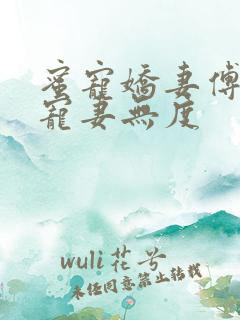 蜜寵嬌妻傅
寵妻無度
wuli花兮
未经同意禁止转载